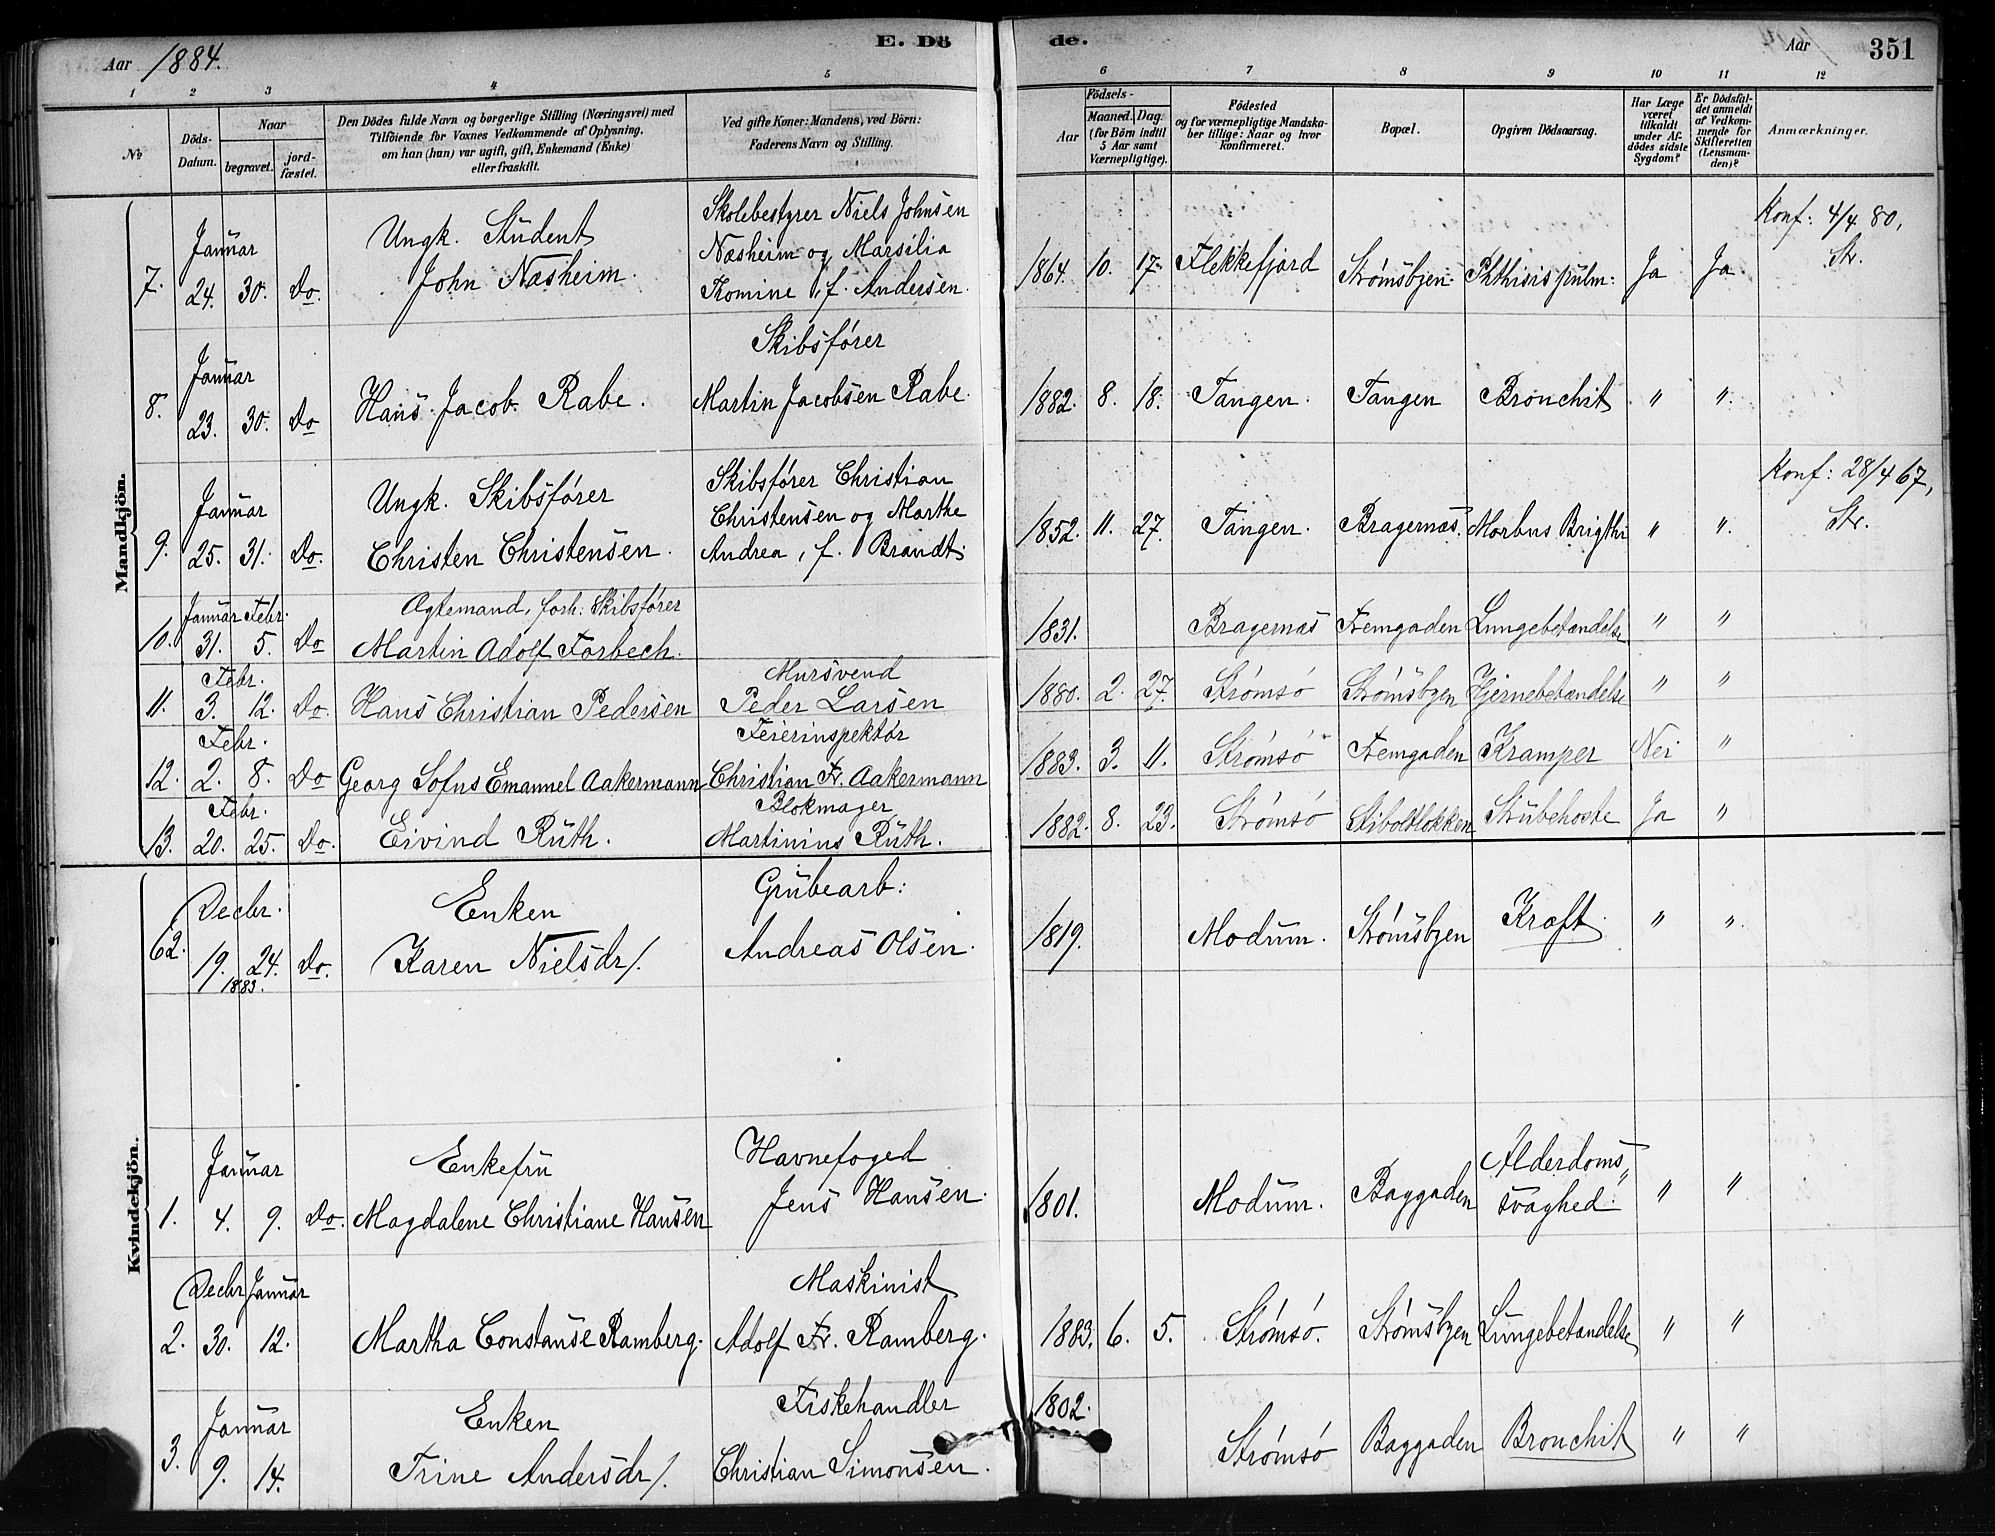 Aar 1884.
E. Dö
de.
Aar
351
1 2 3 4 5 6 7 8 9 10 11 12
No
Döds-Datum.
Naar
begravet.
jord-fæstet.
Den Dödes fulde Navn og borgerlige Stilling (Næringsvei) med
Tilföiende for Voxnes Vedkommende af Oplysning,
om han (hun) var ugift, gift, Enkemand (Enke)
eller fraskilt.
Ved gifte Koner: Mandens, ved Börn:
Faderens Navn og Stilling.
Födsels-
Aar
Maaned. Dag.
(for Börn indtil
5 Aar samt
Værnepligtige).
Födested
og for værnepligtige Mandska-
ber tillige: Naar og hvor
konfirmeret.
Bopæl.
Opgiven Dödsaarsag.
Har Læge
været
tilkaldt
under Af-
dødes sidste
Sygdom?
Er Dödsfal-
det anmeldt
af Vedkom-
mende for
Skifteretten
(Lensman-
den)?
Anmærkninger.
Mandkjön.
Januar
7. 24. 30. Do
Ungk. Student
John Næsheim.
Skolebestyrer Niels Johnsen
Næsheim og Marsilia
Thomine, f. Andersen.
1864. 10. 17. Flekkefjord Strømsbyen. Phthisis pulm: Ja Ja.
Konf: 4/4 80,
Str.
Januar
8. 23. 30. Do
Hans Jacob Rabe.
Skibsfører
Martin Jacobsen Rabe.
1882. 8. 18. Tangen. Tangen Bronchit " "
Januar
9. 25. 31. Do.
Ungk. Skibsfører
Christen Christensen.
Skibsfører Christian
Christensen og Marthe
Andrea, f. Brandt.
1852. 11. 27. Tangen. Bragernæs. Morbus Brigthi " "
Konf: 28/4 67,
Str.
Januar Febr.
10. 31. 5. Do
Ægtemand, forh: Skibsfører
Martin Adolf Forbech.
1831. Bragernæs Fremgaden Lungebetændelse " "
Febr.
11. 3. 12. Do.
Hans Christian Pedersen
Mursvend
Peder Larsen
1880. 2. 27. Strømsø Strømsbyen Hjernebetændelse " "
Febr.
12. 2. 8. Do
Georg Sofus Emanuel Aakermann
Feierinspektør
Christian Fr. Aakermann
1883. 3. 11. Strømsø Fremgaden Kramper Nei "
Febr.
13. 20. 25. Do.
Eivind Ruth.
Blokmager
Martinius Ruth.
1882. 8. 23. Strømsø Stiboltløkken Strubehoste Ja "
Kvindekjön.
Decbr.
62. 19. 24. Do.
1883.
Enken
Karen Nielsdr/.
Grubearb:
Andreas Olsen.
1819. Modum. Strømsbyen Kræft. " "
Januar
1. 4. 9. Do.
Enkefru
Magdalene Christiane Hansen
Havnefoged
Jens Hansen.
1801. Modum. Baggaden Alderdoms
svaghed. " "
Decbr Januar
2. 30. 12.
Martha Constanse Ramberg.
Maskinist
Adolf Fr. Ramberg.
1883. 6. 5. Strømsø. Strømsbyen Lungebetændelse " "
Januar
3. 9. 14.
Enken
Trine Andersdr/.
Fiskehandler
Christian Simonsen.
1802. Strømsø Baggaden Bronchit " "